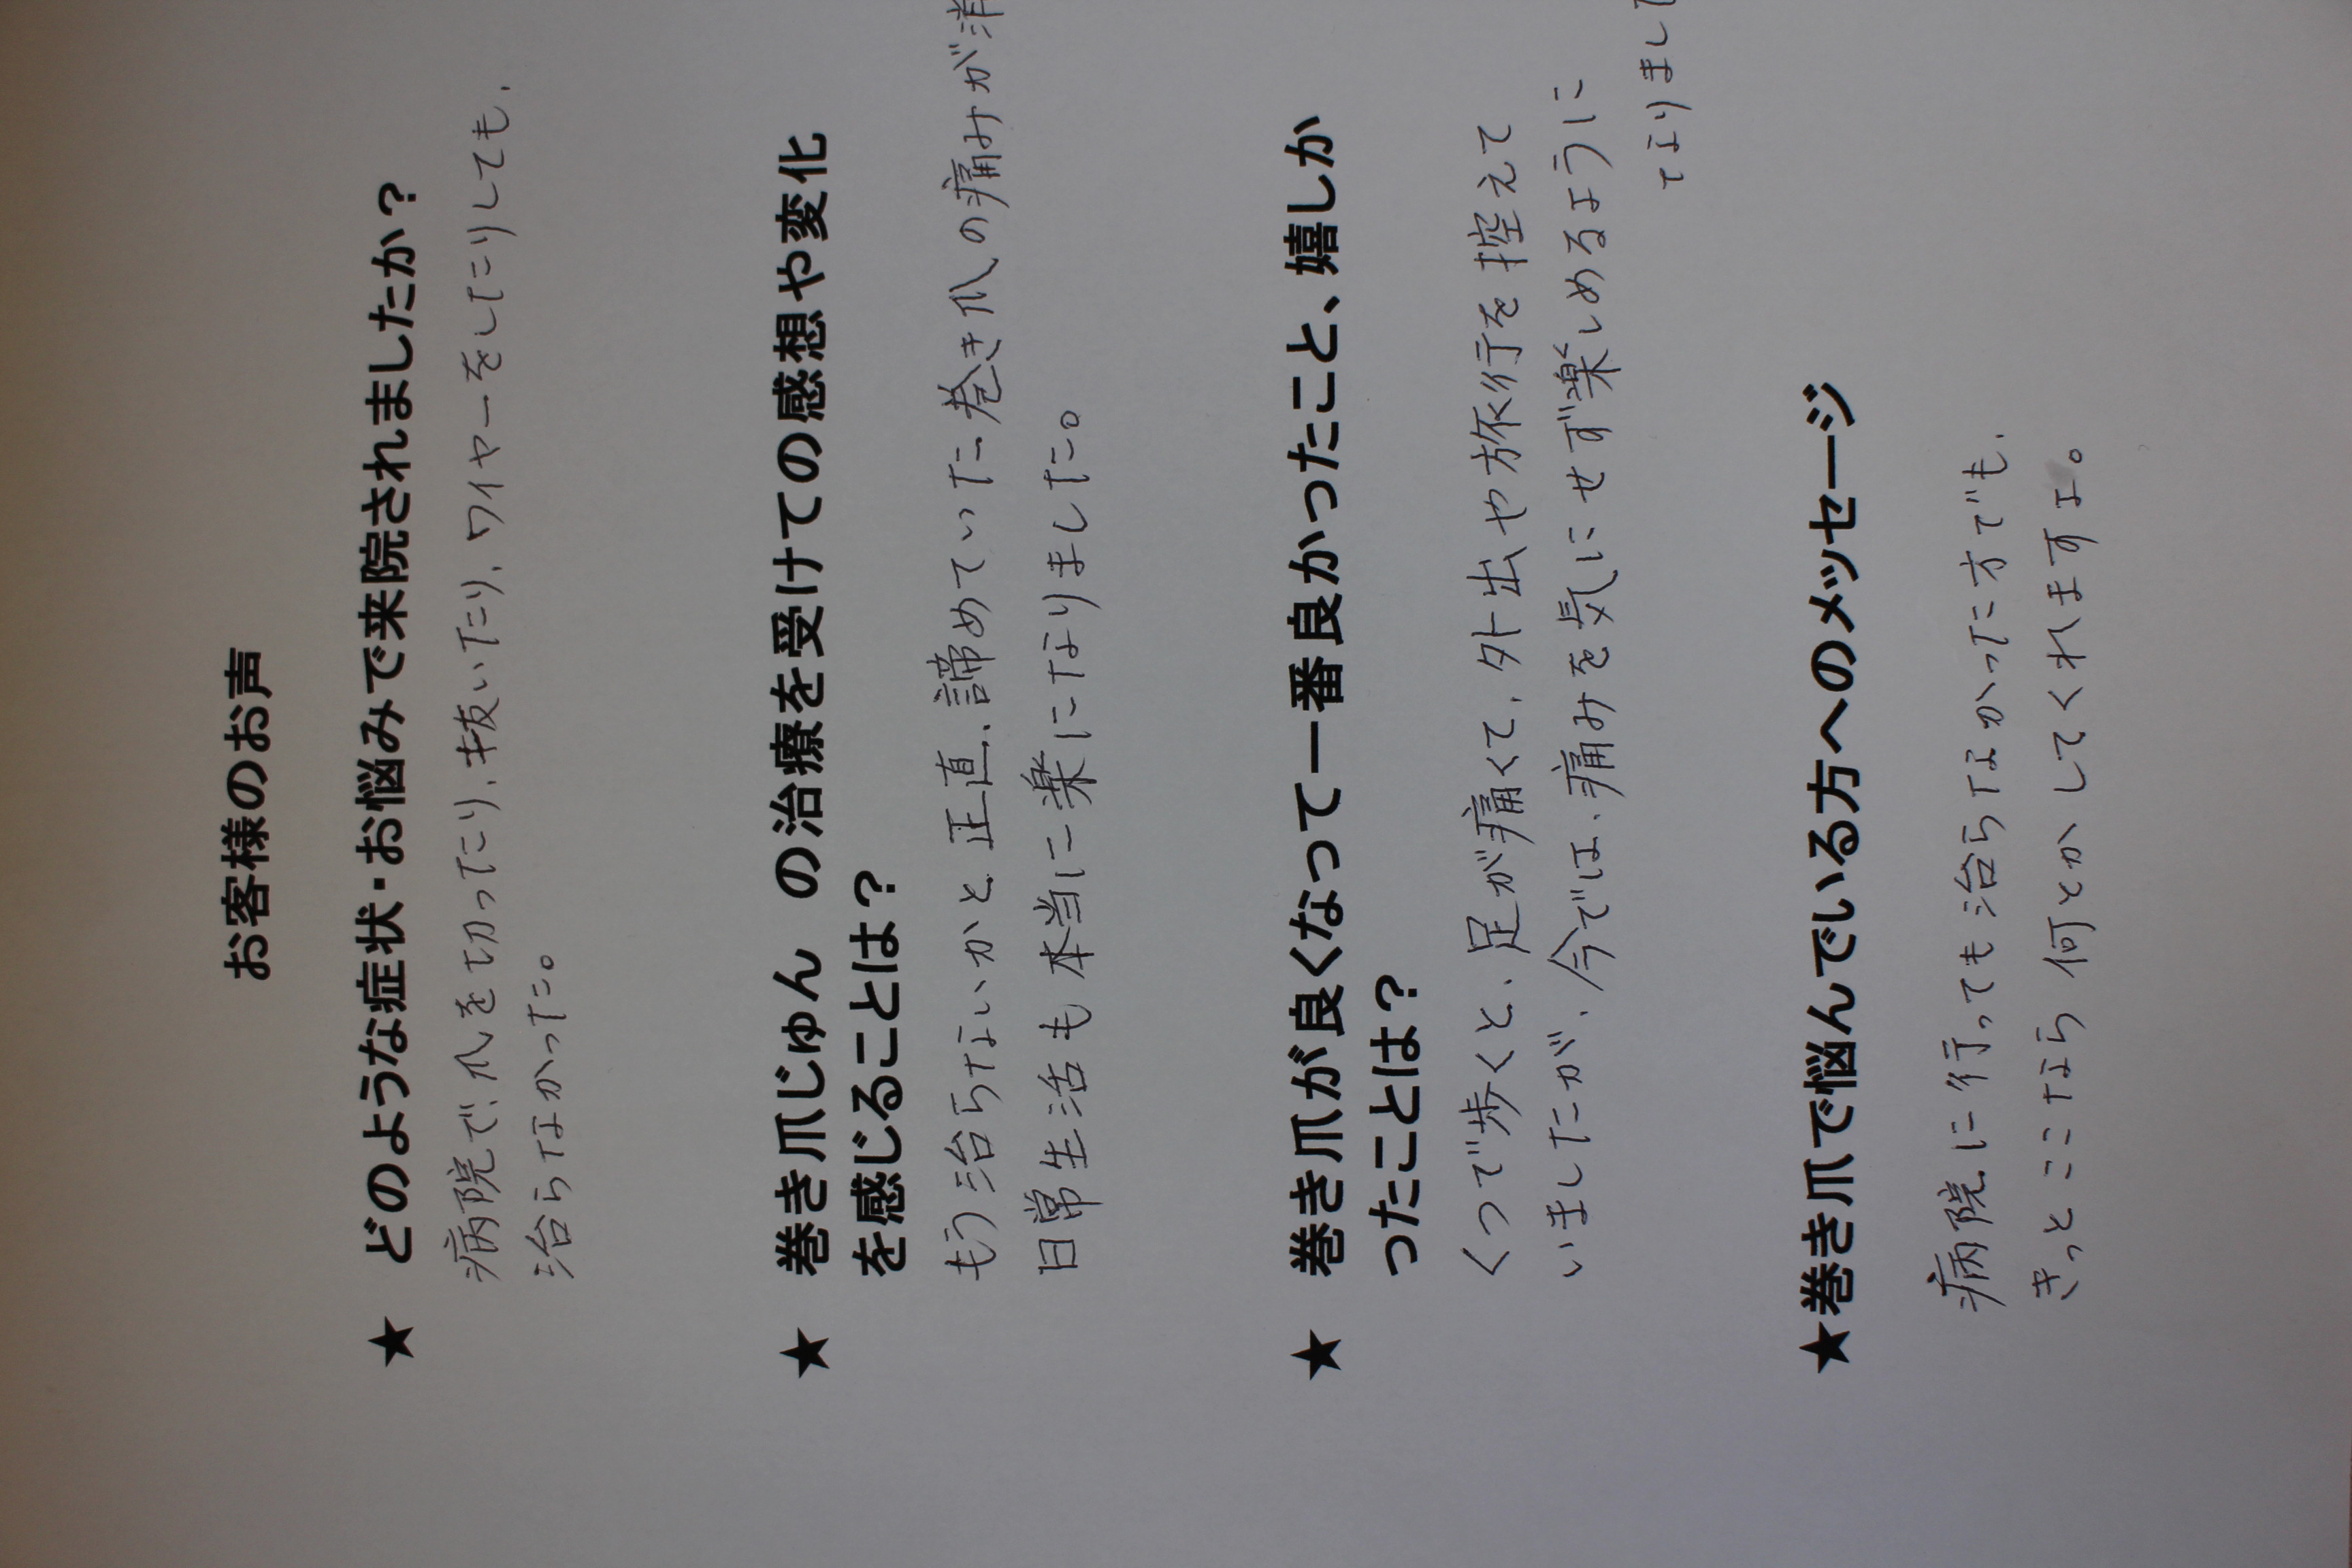 お客様のお声
★ どのような症状・お悩みで来院されましたか？
病院で、爪を切ったり、抜いたり、ワイヤーをしたりしても、
治らなかった。
★ 巻き爪じゅん の治療を受けての感想や変化
を感じることは？
もう治らないかと正直、諦めていた巻き爪の痛みが消
日常生活も本当に楽になりました。
★ 巻き爪が良くなって一番良かったこと、嬉しか
ったことは？
くつで歩くと、足が痛くて、外出や旅行を控えて
いましたが、今では、痛みを気にせず楽しめるように
なりました
★巻き爪で悩んでいる方へのメッセージ
病院に行っても治らなかった方でも、
きっとここなら何とかしてくれますよ。